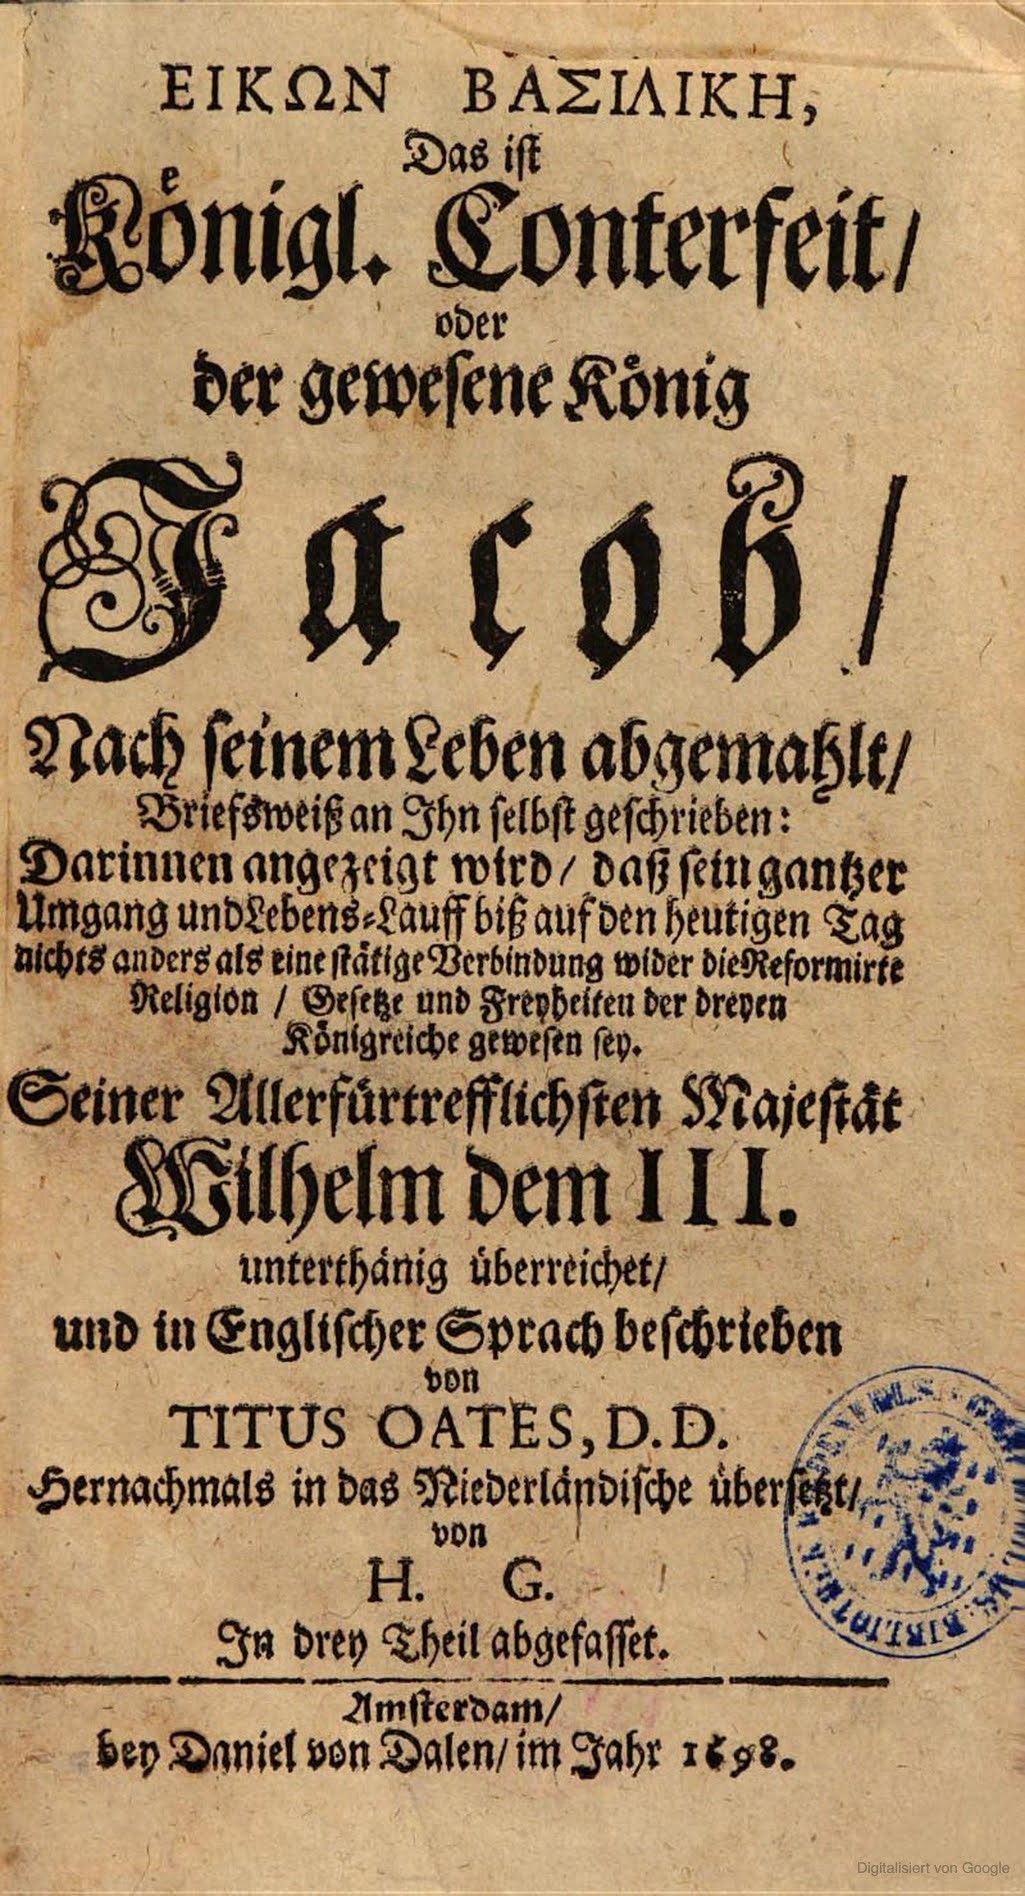 ΕΙΚΩΝ ΒΑΣΙΛΙΚΗ,
Das ist
Koͤnigl. Conterfeit/
oder
der gewesene König
Jacob/
Nach seinem Leben abgemahlt/
Briefsweiß an Ihn selbst geschrieben:
Darinnen angezeigt wird/ daß sein gantzer
Umgang und Lebens-Lauff biß auf den heutigen Tag
nichts anders als eine stätige Verbindung wider die Reformirte
Religion / Gesetze und Freyheiten der dreyen
Königreiche gewesen sey.
Seiner Allerfürtrefflichsten Majestät
Wilhelm dem III.
unterthänig überreichet/
und in Englischer Sprach beschrieben
von
TITUS OATES, D.D.
Hernachmals in das Niederländische übersetzt/
von
H. G.
In drey Theil abgefasset.
Amsterdam/
bey Daniel von Dalen/ im Jahr 1698.
Digitalisiert von Google